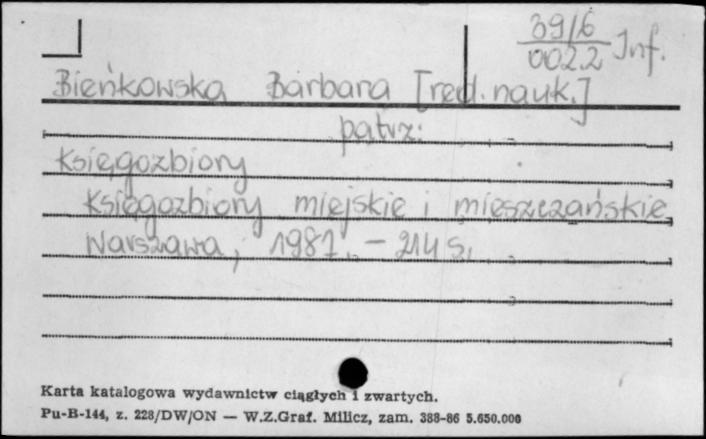 39/6
002.2 Inf.
Bieńkowska Barbara [red. nauk.]
patrz:
Księgozbiory
Księgozbiory miejskie i mieszczańskie
Warszawa, 1981. – 214 s.
Karta katalogowa wydawnictw ciągłych i zwartych.
Pu-B-144, z. 228/DW/ON — W.Z.Graf. Milicz, zam. 388-86 5.650.000